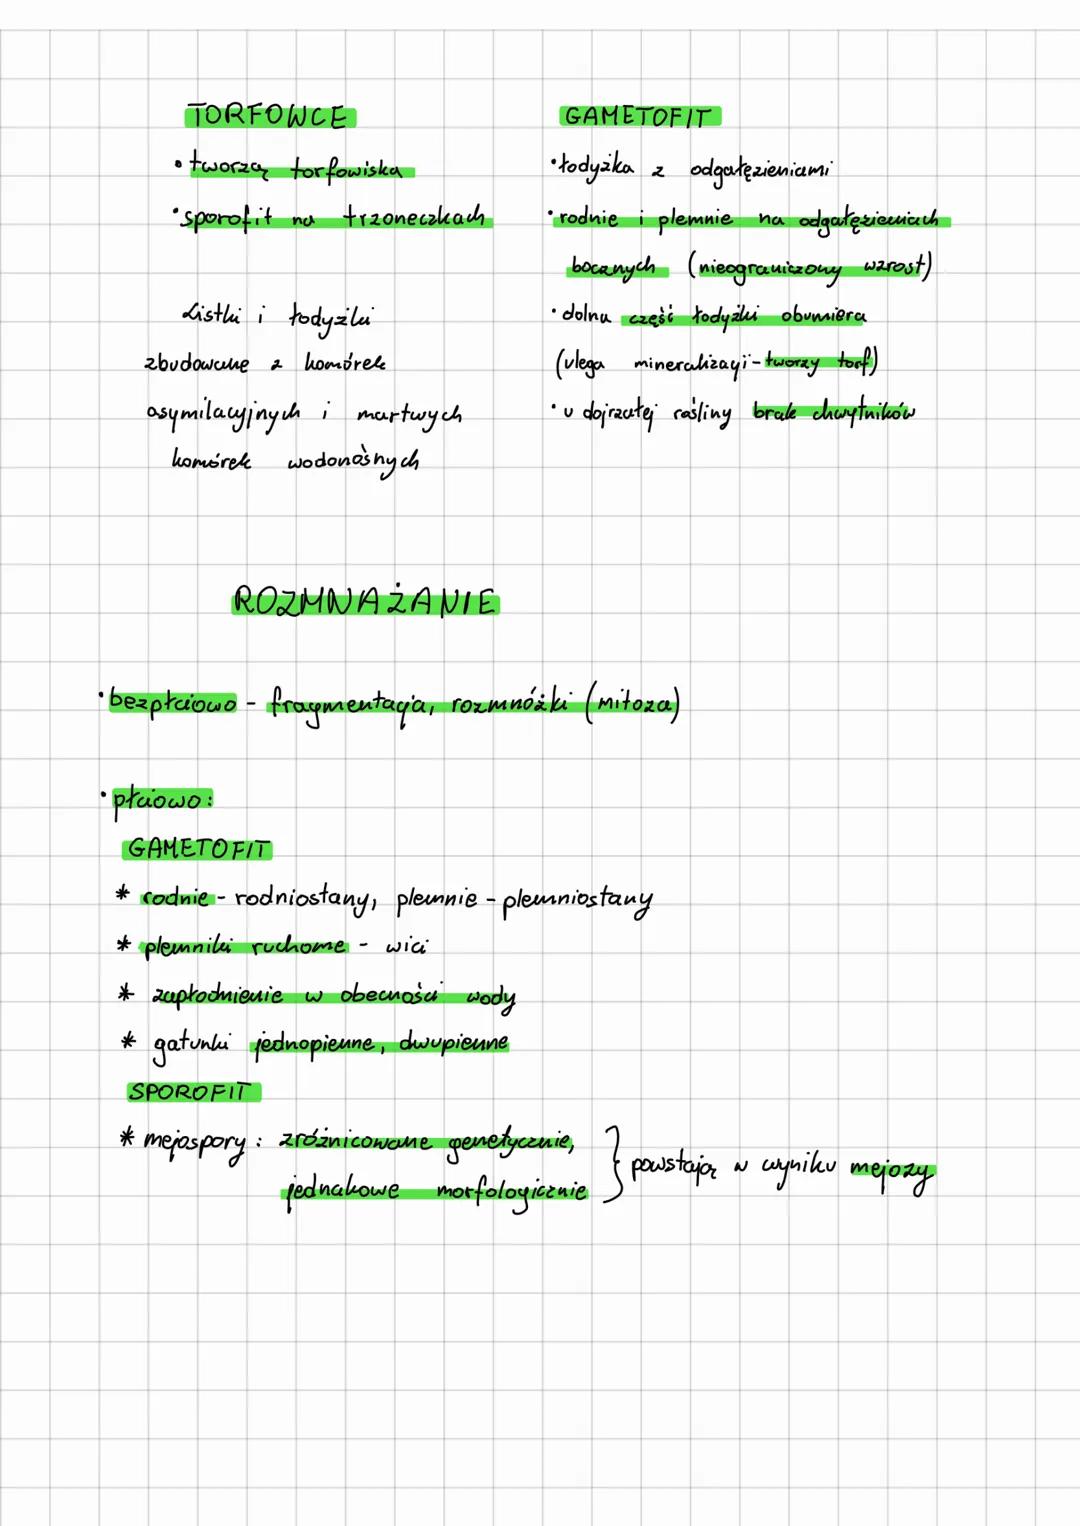 TORFOWCE
• tworzą torfowiska
• sporofit na trzoneczkach
Listki i łodyżki
zbudowane z komórek
asymilacyjnych i martwych
komórek wodonośnych
GAMETOFIT
• łodyżka z odgałęzieniami
• rodnie i plemnie na odgałęzieniach
bocznych (nieograniczony wzrost)
• dolna część łodyżki obumiera
(ulega mineralizacji - tworzy torf)
• u dojrzałej rośliny brak chwytników
ROZMNAŻANIE
• bezpłciowo - fragmentacja, rozmnóżki (mitoza)
• płciowo:
GAMETOFIT
* rodnie - rodniostany, plemnie - plemniostany
* plemniki ruchome - wici
* zapłodnienie w obecności wody
* gatunki jednopienne, dwupienne
SPOROFIT
* mejospory: zróżnicowane genetycznie,
jednakowe morfologicznie } powstają w wyniku mejozy